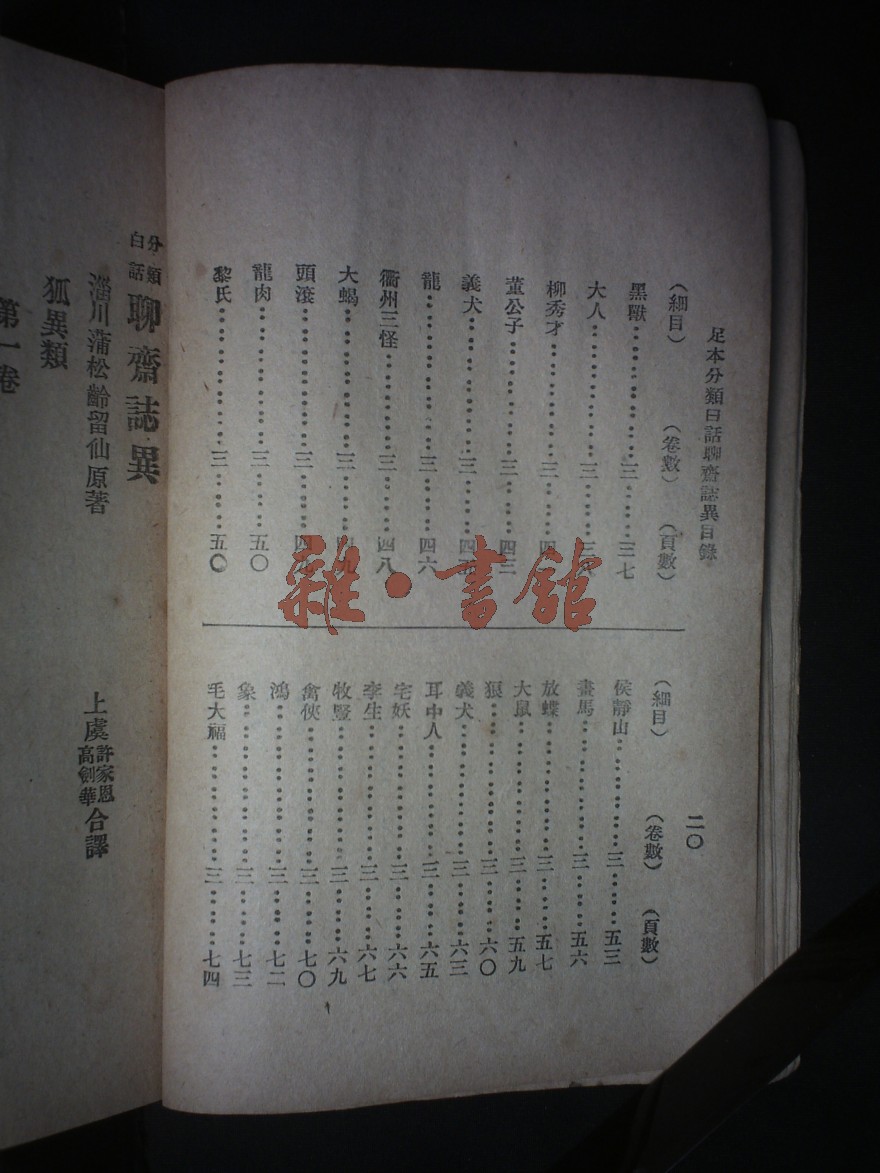 足本分類白話聊齋誌異目錄
二〇
（細目）（卷數）（頁數）
黑獸……三……三七
大人……三……三
柳秀才……三……四
董公子……三……四三
義犬……三……四
龍……三……四六
衢州三怪……三……四八
大蝎……三……四九
頭滾……三……四九
龍肉……三……五〇
黎氏……三……五〇
（細目）（卷數）（頁數）
侯靜山……三……五三
畫馬……三……五六
放蝶……三……五七
大鼠……三……五九
狼……三……六〇
義犬……三……六三
耳中人……三……六五
宅妖……三……六六
李生……三……六七
牧豎……三……六九
禽俠……三……七〇
鴻……三……七二
象……三……七三
毛大福……三……七四
分類白話聊齋誌異
淄川蒲松齡留仙原著
上虞許家恩高劍華合譯
狐異類
第一卷
雜·書館